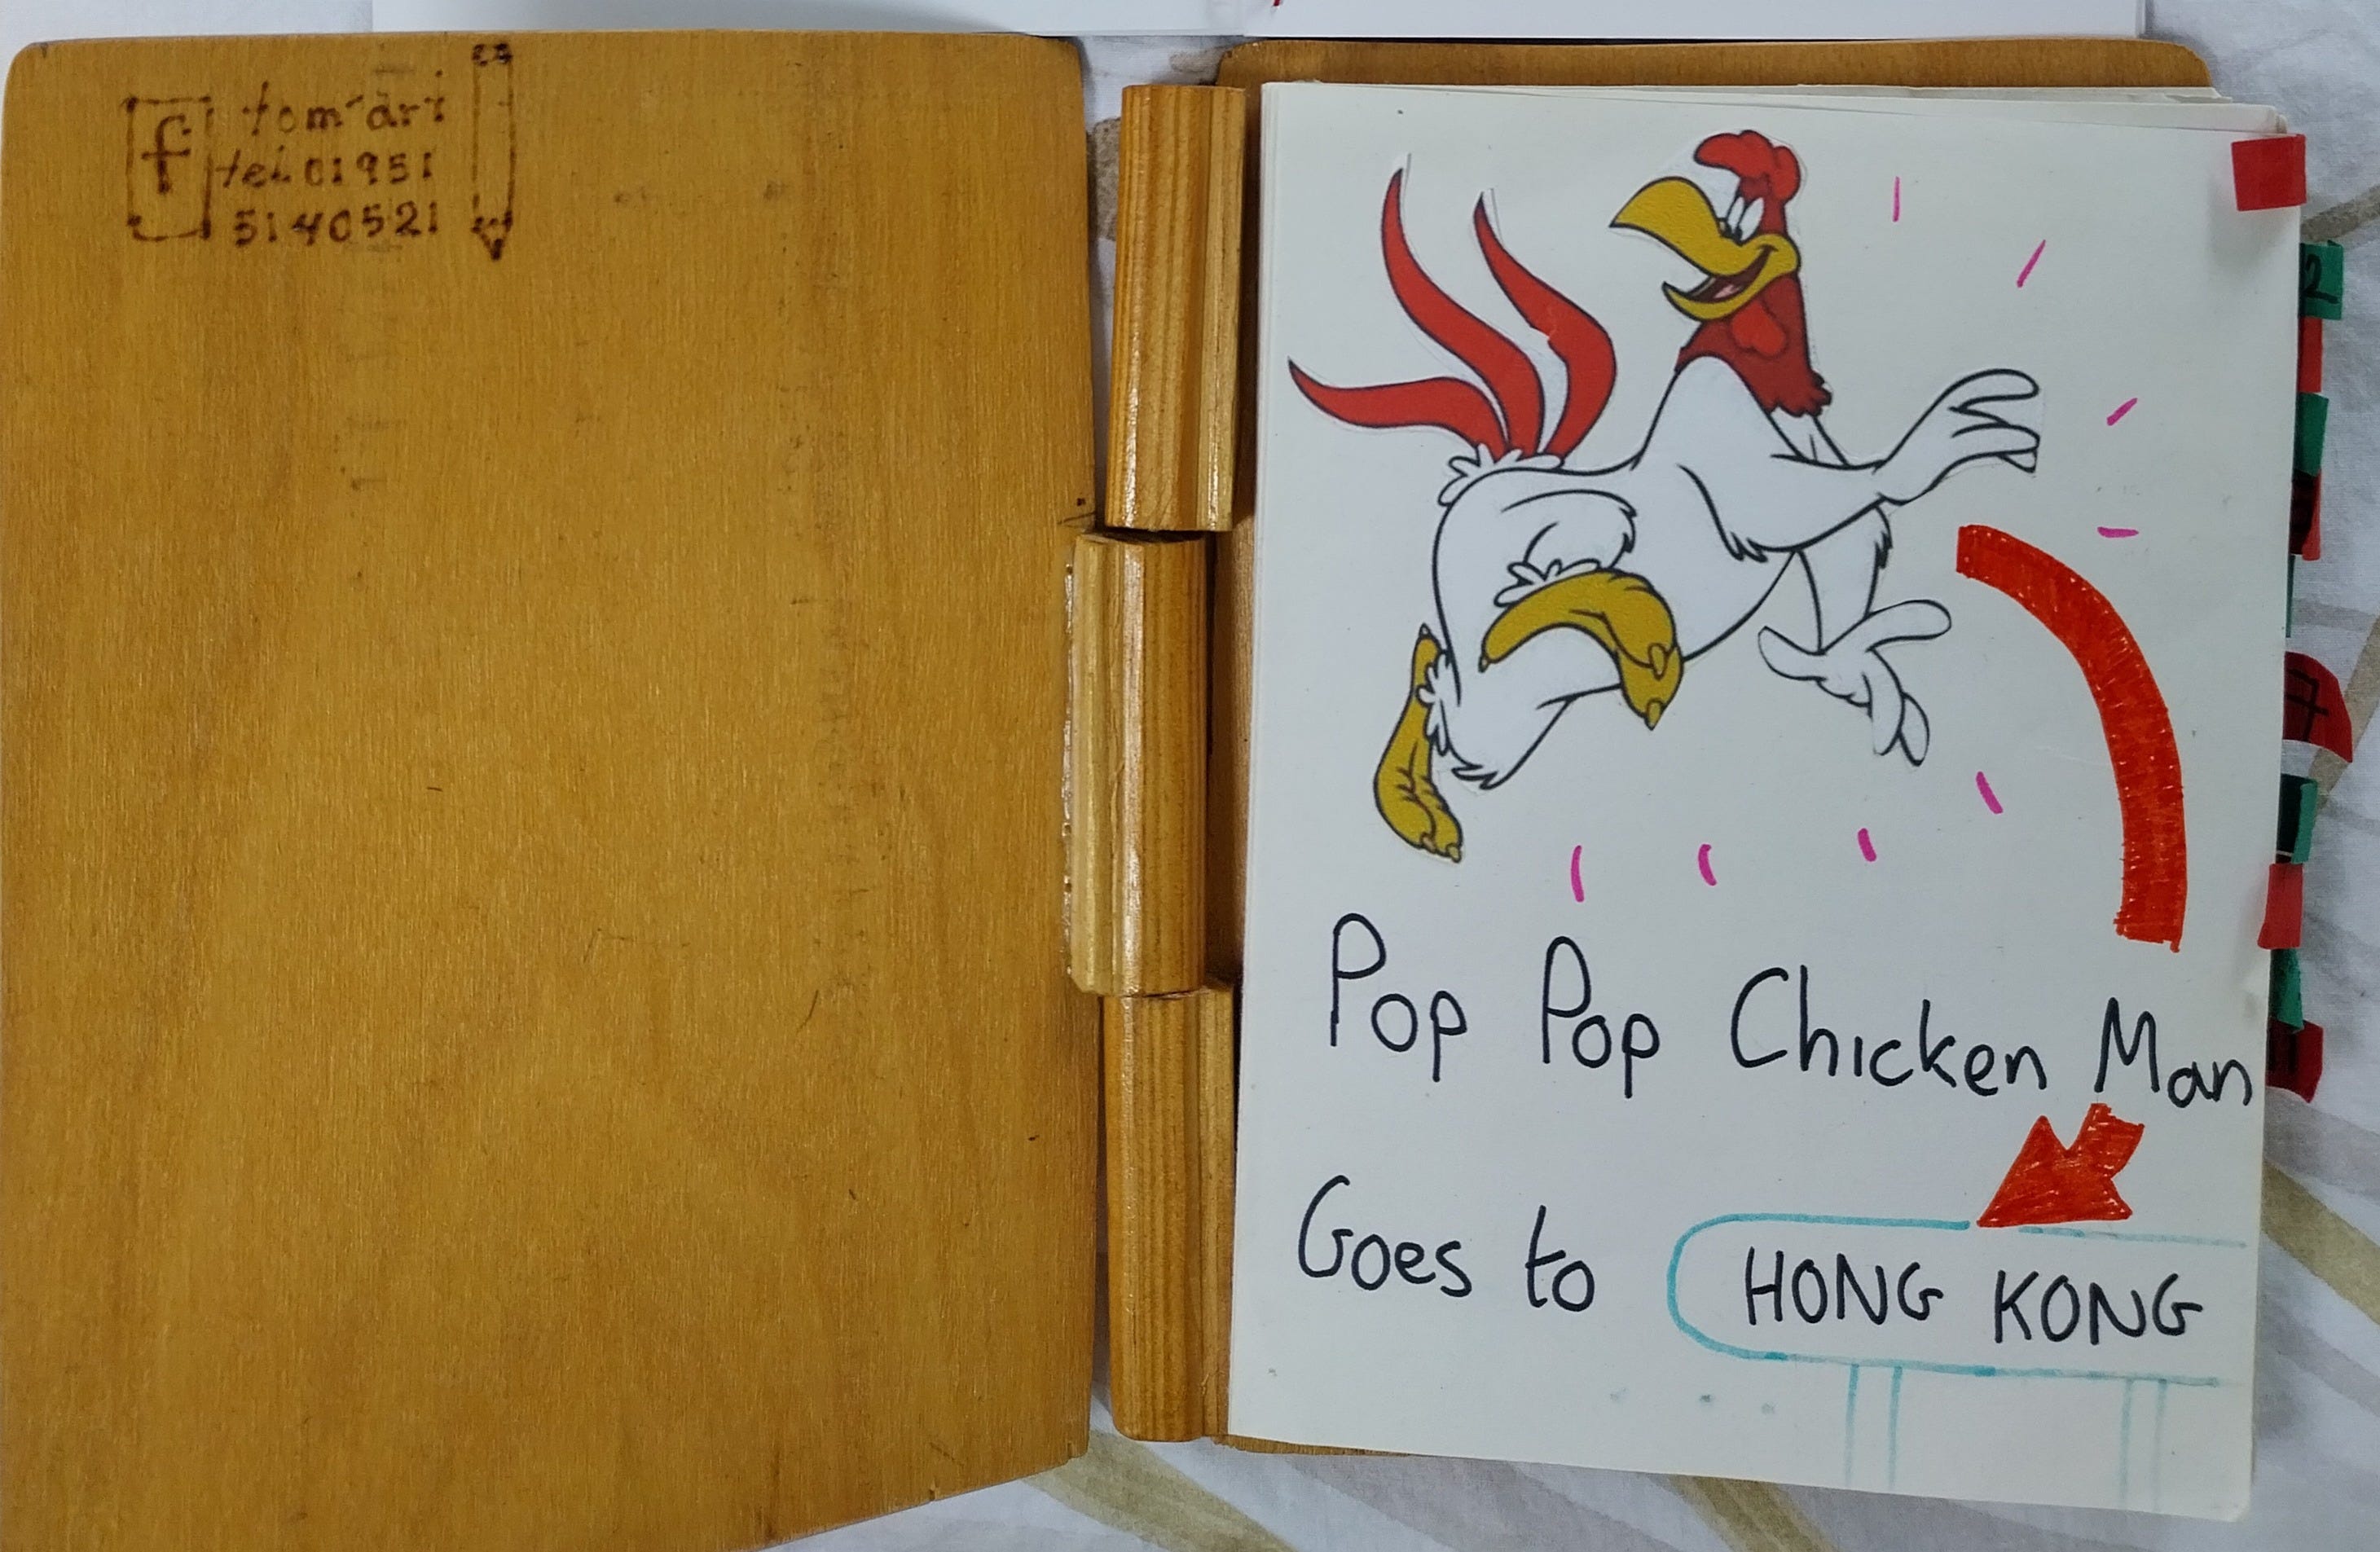 f tom art
tel 01951
5140521
2
7
11
Pop Pop Chicken Man
Goes to HONG KONG